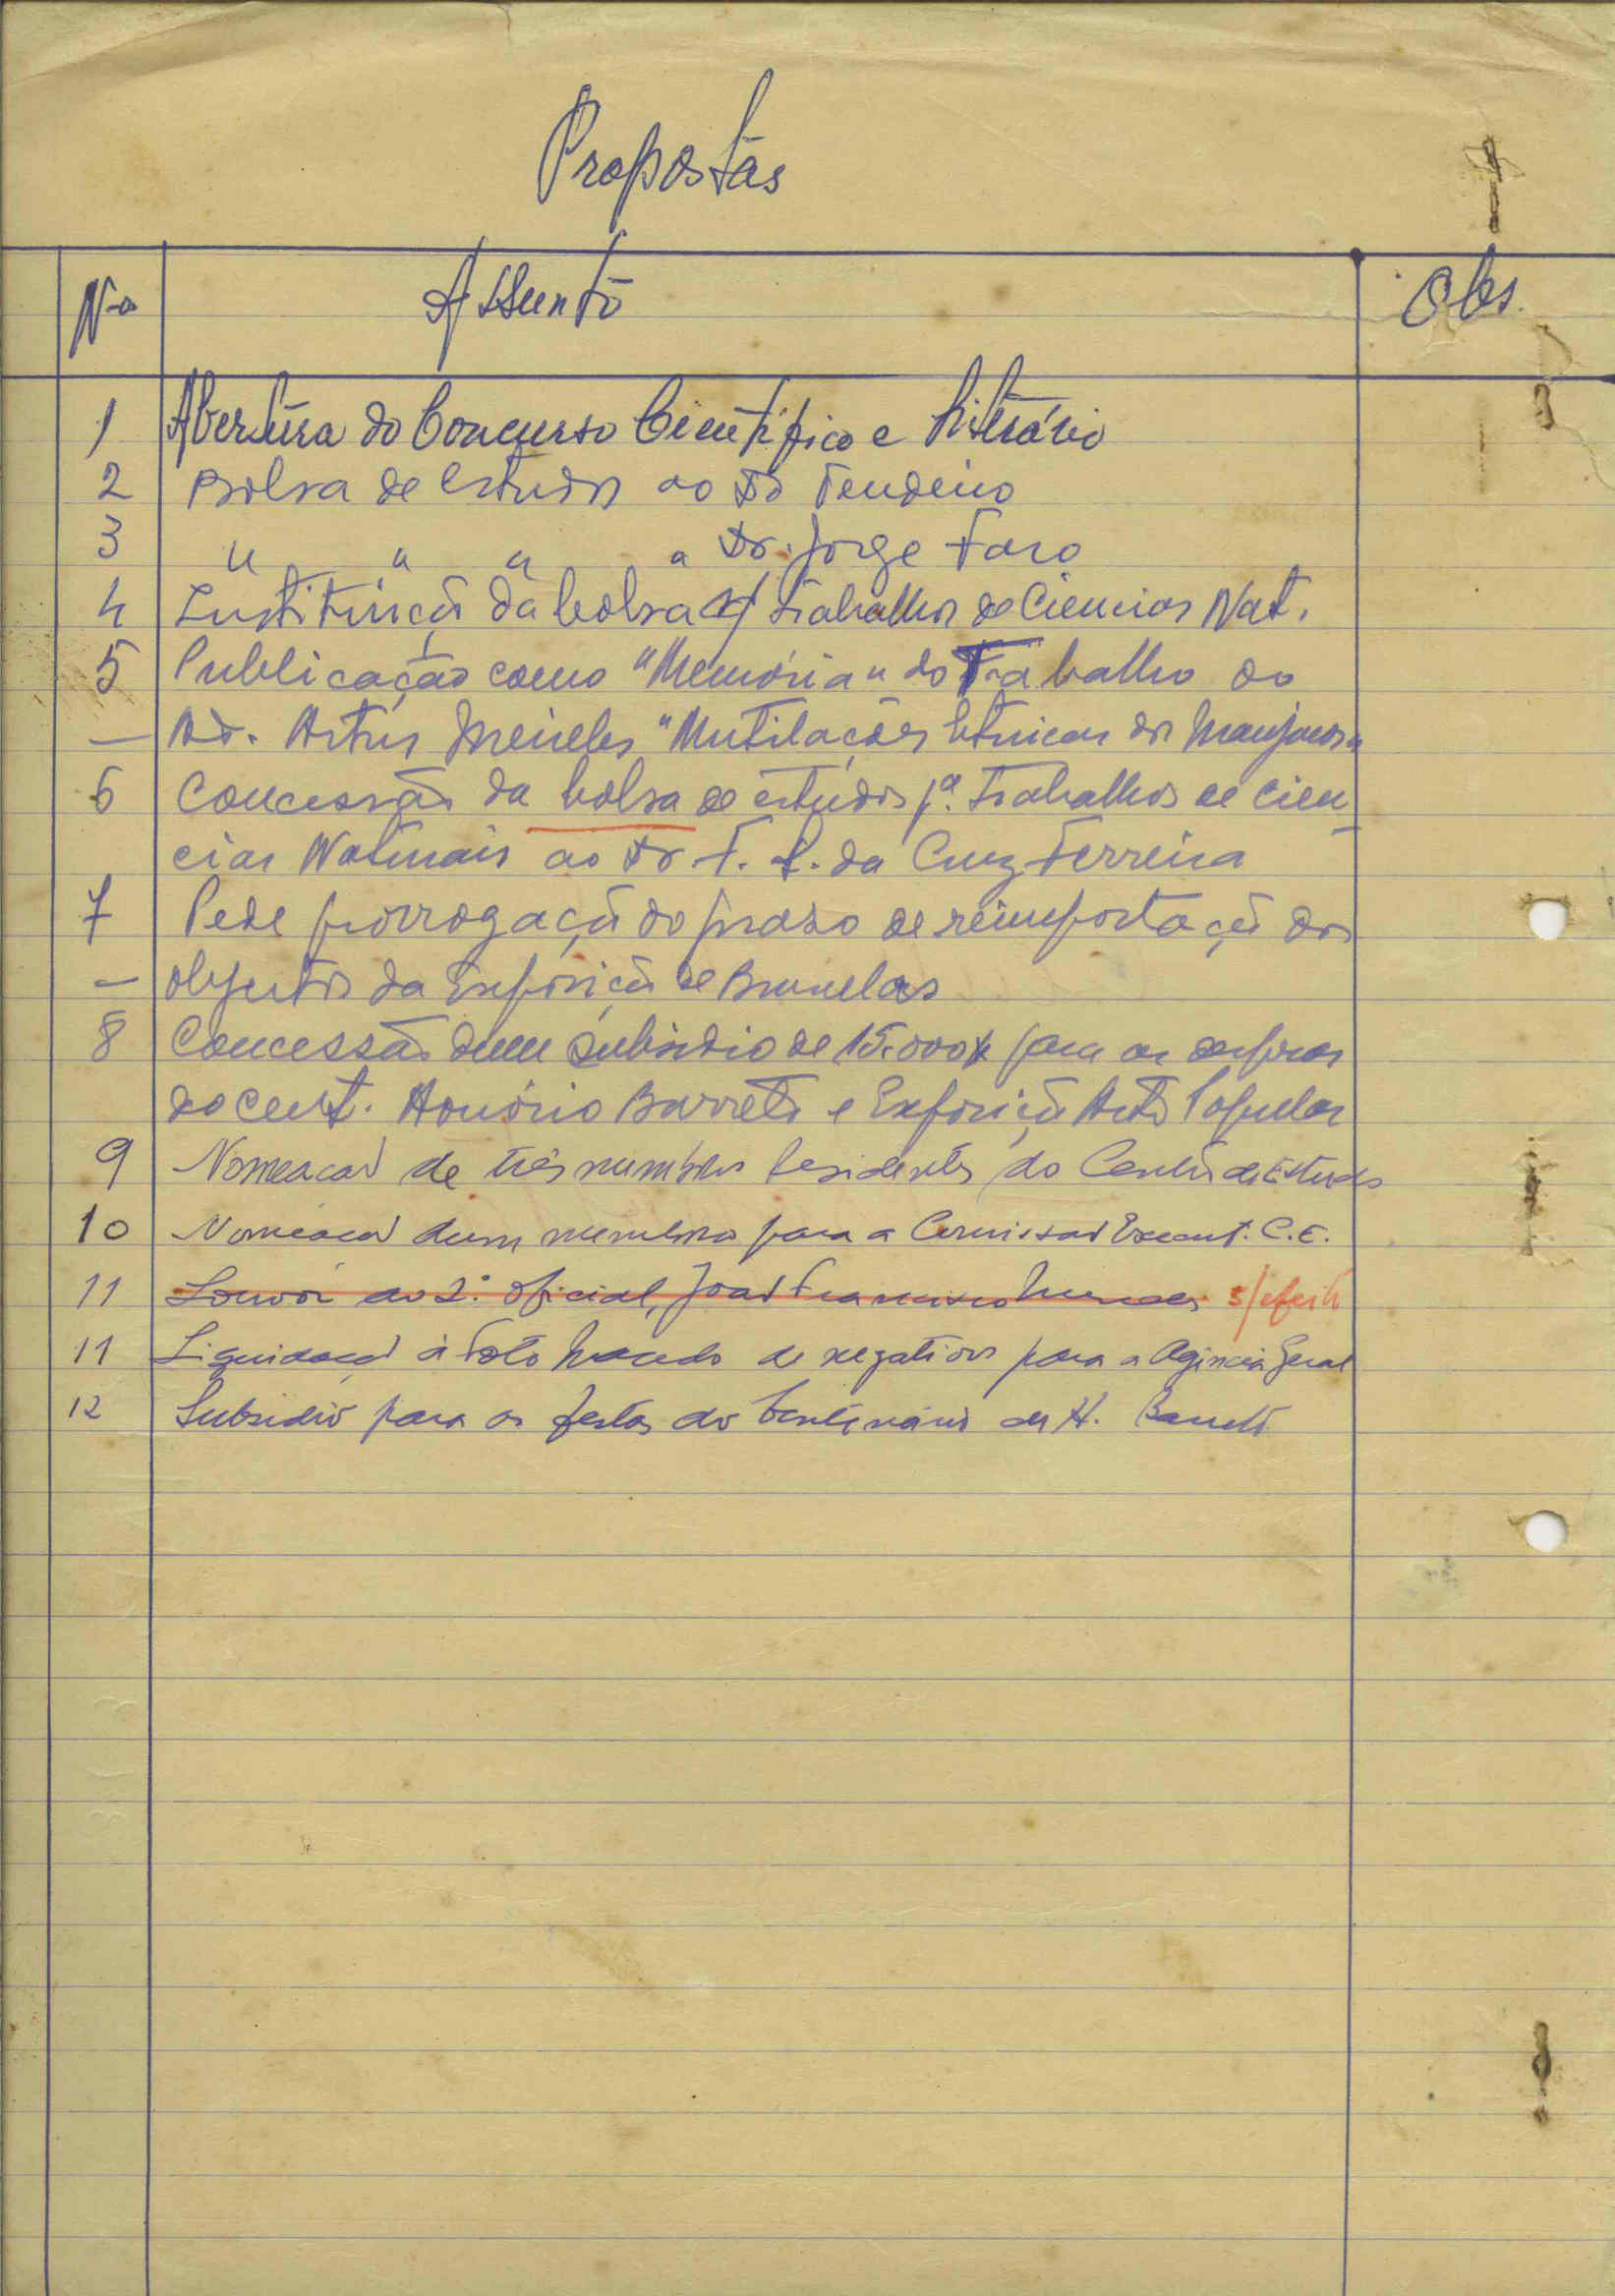 Propostas
Nº Assunto Obs.
1 Abertura do Concurso Cientifico e Literário
2 Bolsa de Estudos ao Dr Tendeiro
3 " " " " Dr. Jorge Faro
4 Instituição da bolsa p/ trabalhos de Ciencias Nat.
5 Publicação como "Memória" do Trabalho do
— Ad. Artur Meireles "Mutilações Etnicas dos Manjacos"
6 Concessão da bolsa de estudos pª. trabalhos de Cien
cias Naturais ao Dr. F. S. da Cruz Ferreira
7 Pede prorrogação do praso de reimportação dos
— objectos da Exposição de Bruxelas
8 Concessão dum subsidio de 15.000$ para as despesas
do cent. Honório Barreto e Exposição Arte Popular
9 Nomeação de três membros residentes do Centro de Estudos
10 Nomeação dum membro para a Comissão Execut. C.E.
11 Louvor ao 2.º oficial, João Francisco Mendes s/efeito
11 Liquidação à Foto Macedo de negativos para a Agência Geral
12 Subsidio para as festas do Centenário de H. Barreto